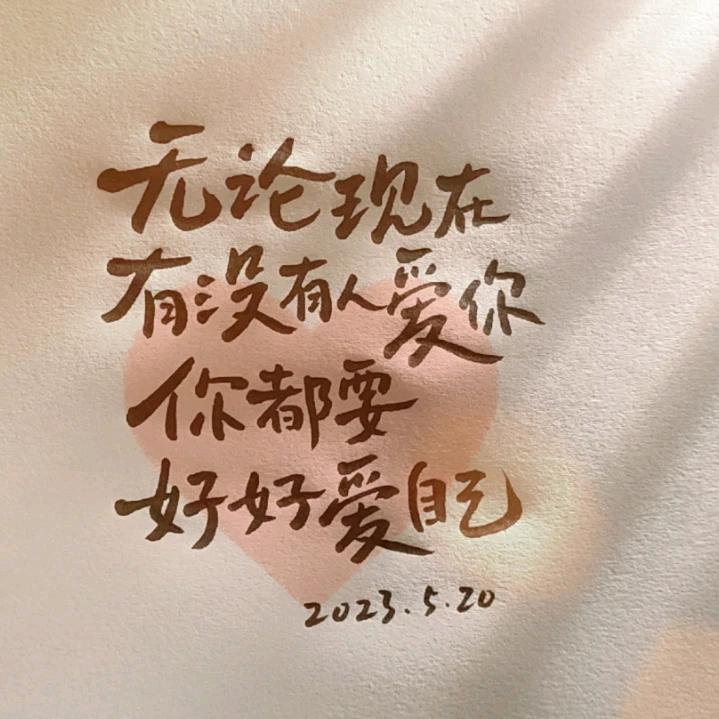 无论现在
有没有人爱你
你都要
好好爱自己
2023.5.20